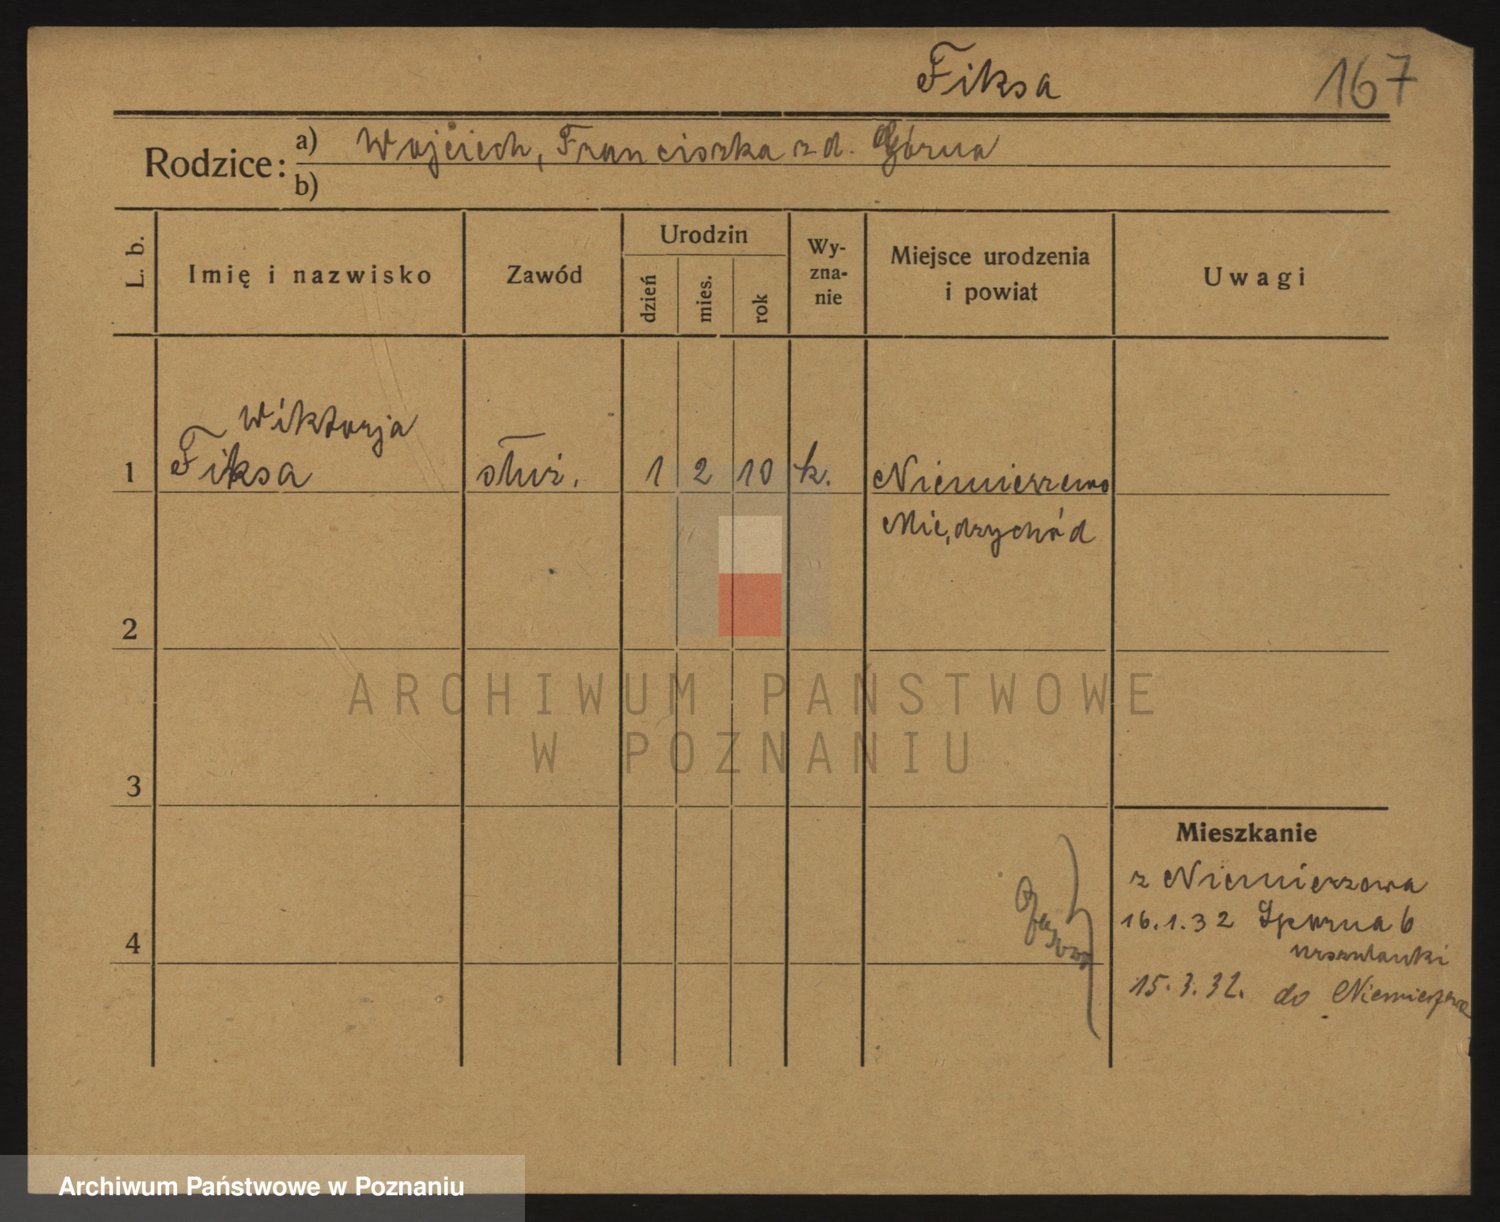 Fiksa
167
Rodzice:
a) Wojciech, Franciszka z d. Górna
b)
L. b.
Imię i nazwisko
Zawód
Urodzin
dzień
mies.
rok
Wy-
zna-
nie
Miejsce urodzenia
i powiat
Uwagi
Wiktorja
1 Fiksa służ. 1 2 10 k. Niemierzewo
Międzychód
2
ARCHIWUM PAŃSTWOWE
W POZNANIU
3
Mieszkanie
z Niemierzewa
16.1.32 Sporna 6
Urszulanki
4
15.3.32. do Niemierzewa
Archiwum Państwowe w Poznaniu